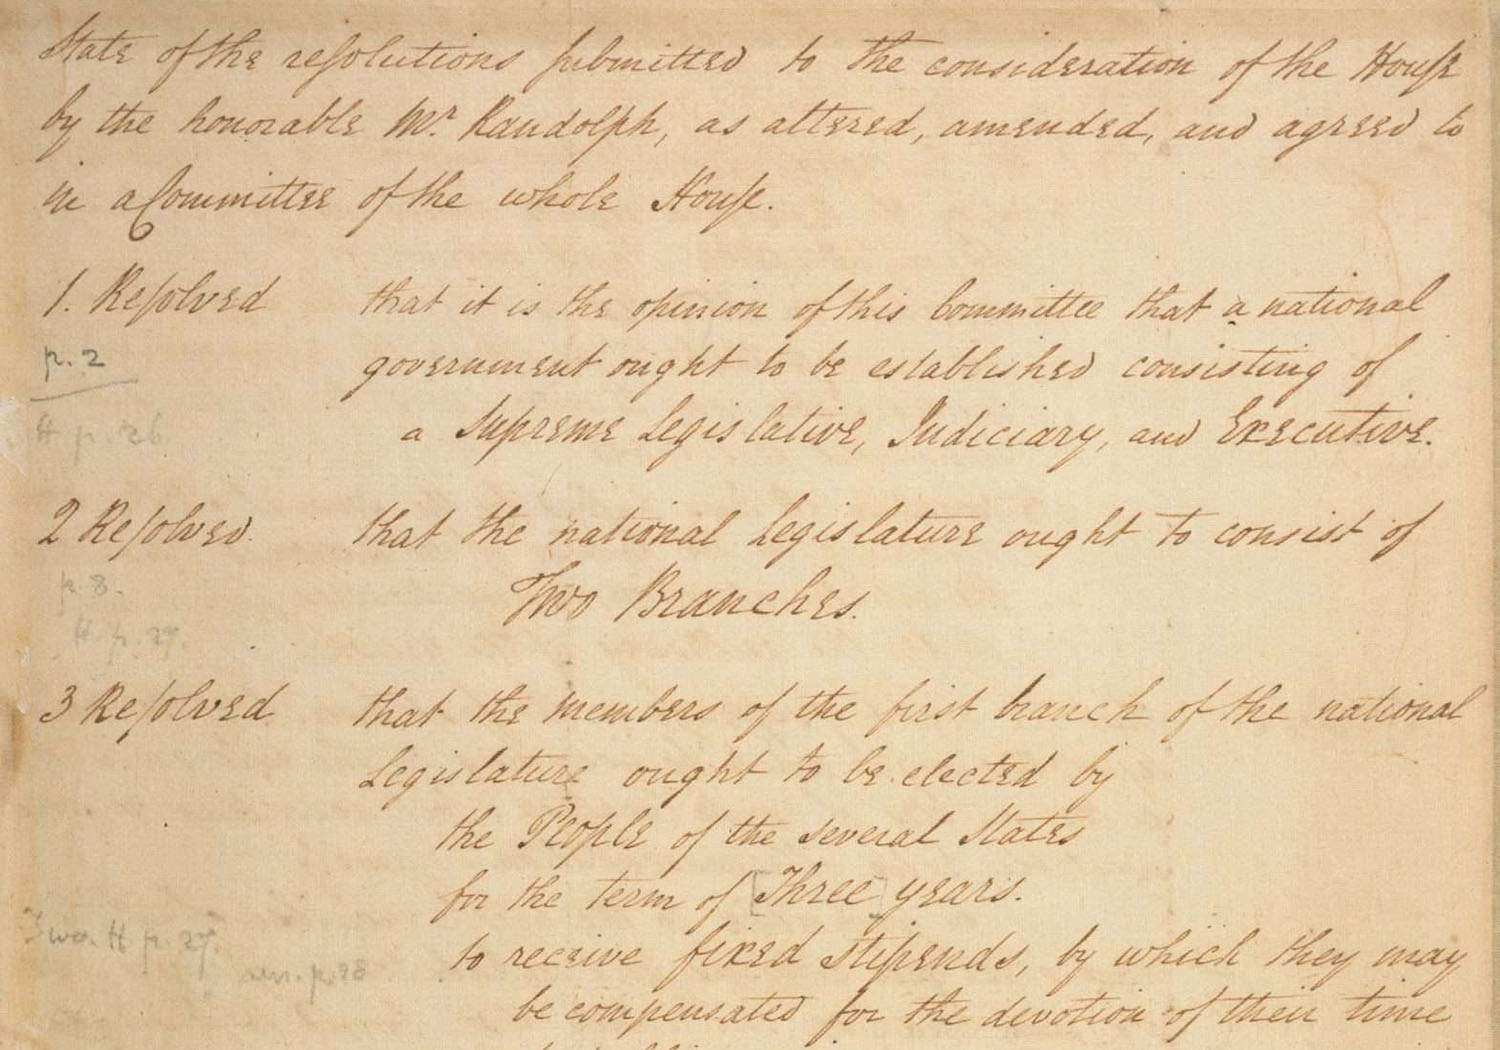 State of the resolutions submitted to the consideration of the House
by the honorable Mr. Randolph, as altered, amended, and agreed to
in a Committee of the whole House.
1. Resolved that it is the opinion of this Committee that a national
p. 2 government ought to be established consisting of
a Supreme Legislative, Judiciary, and Executive.
H p. 26
2 Resolved. that the national Legislature ought to consist of
p. 8. Two Branches.
H. p. 27.
3 Resolved that the members of the first branch of the national
Legislature ought to be elected by
the People of the several States
for the term of [Three] years.
H p. 27.
to receive fixed stipends, by which they may
p. 28
be compensated for the devotion of their time